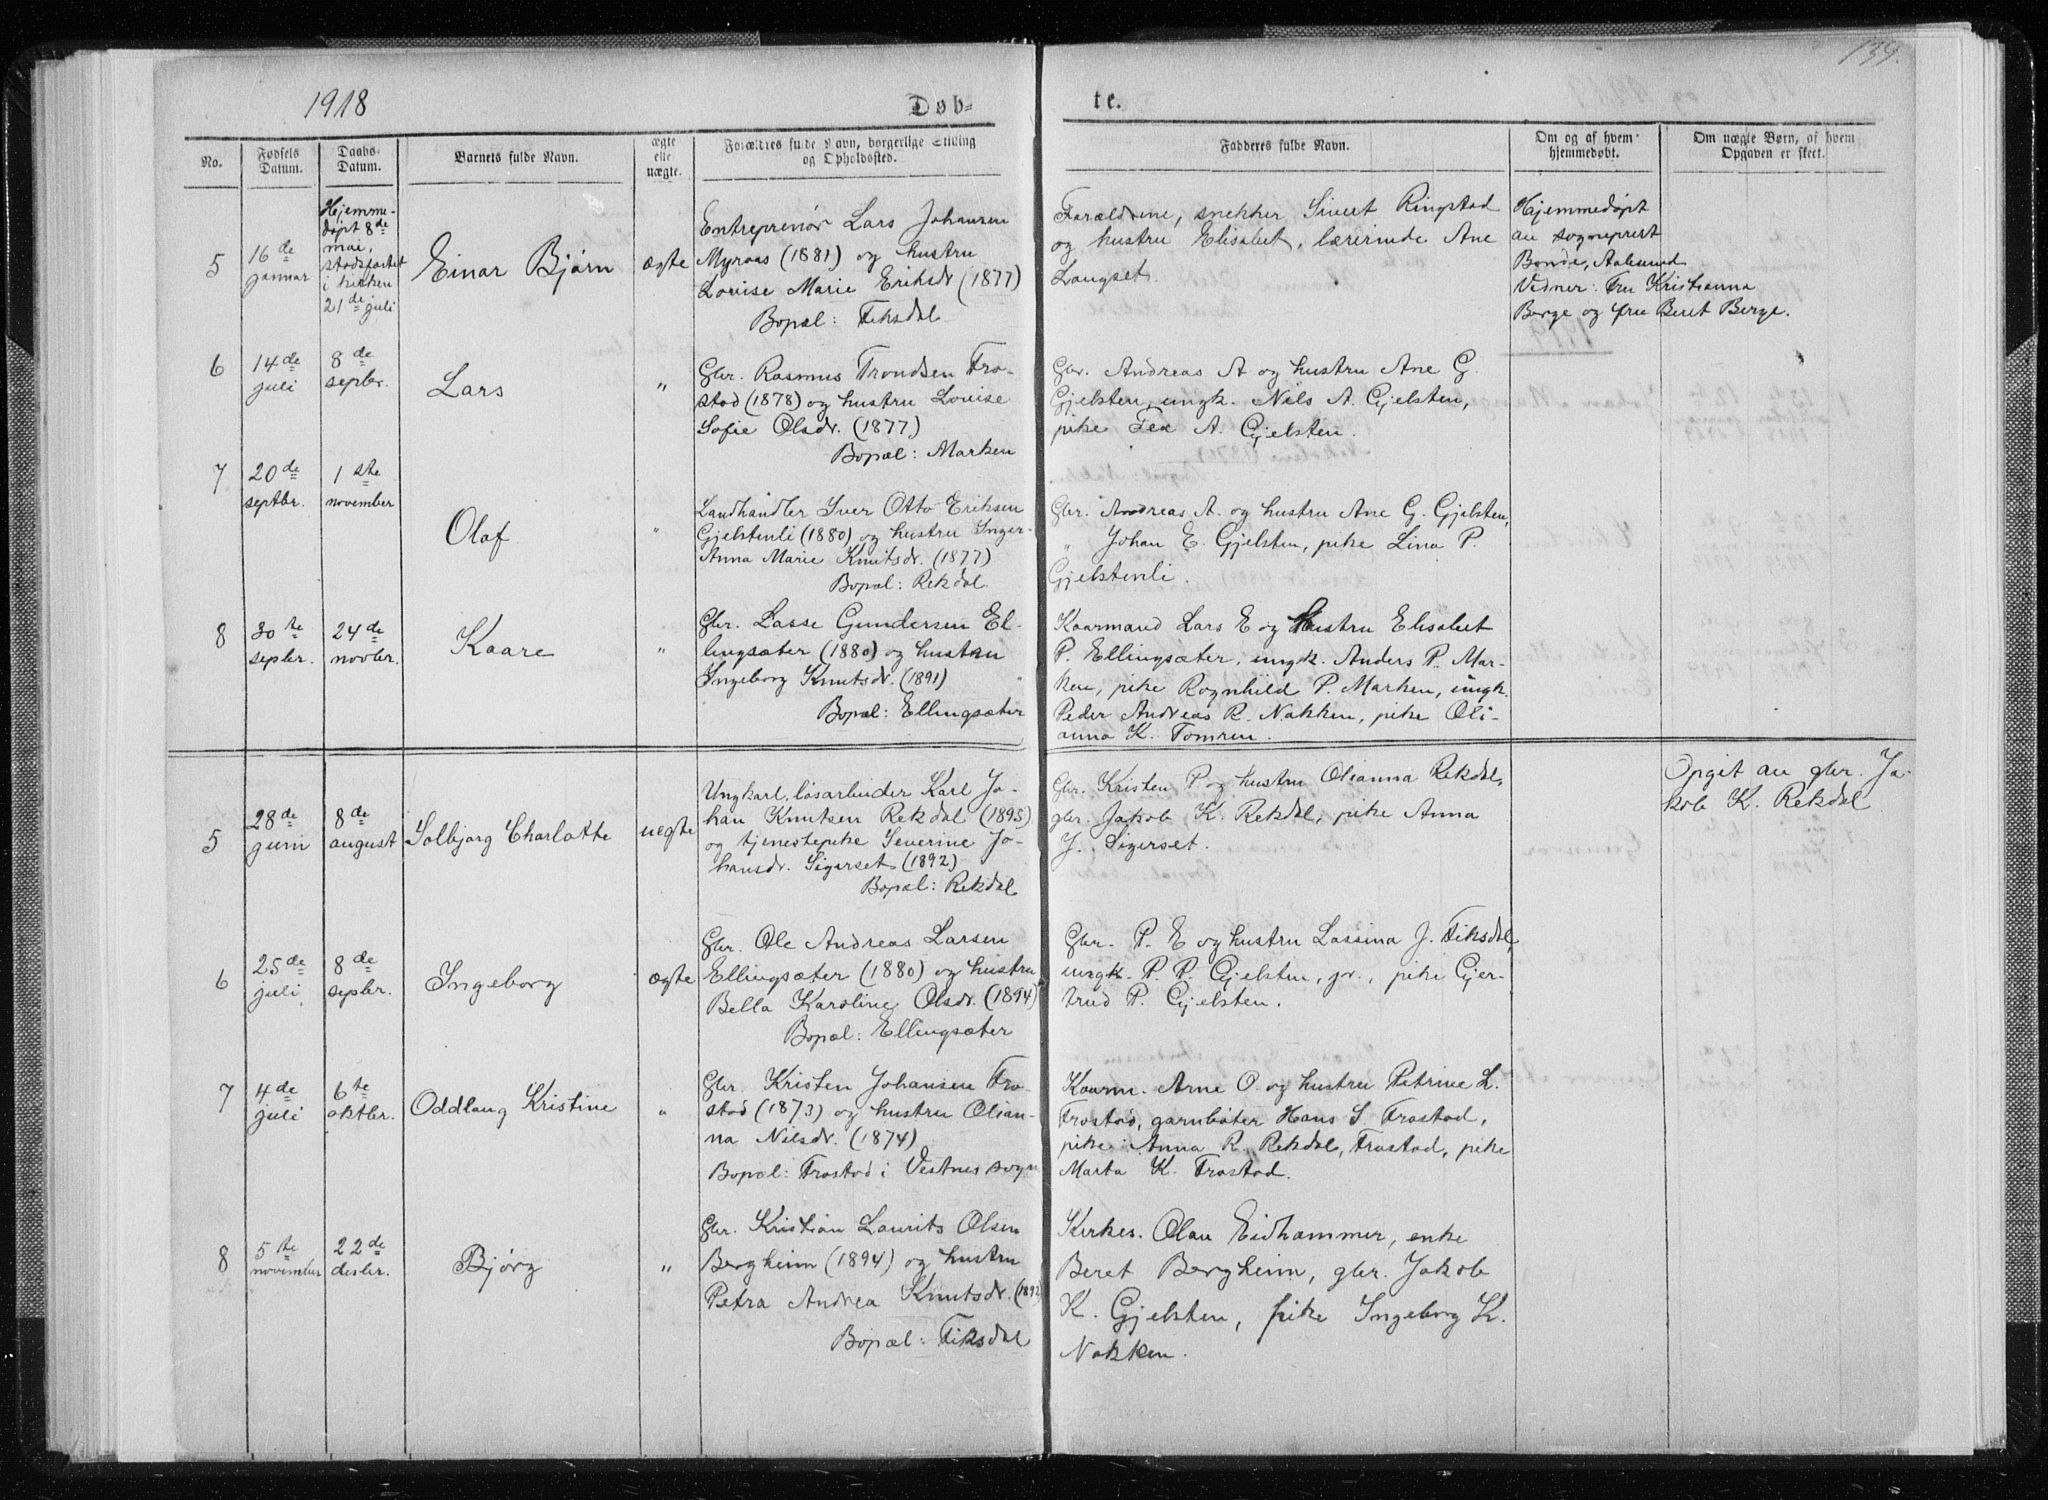 1918
Døb-
te.
139.
No.
Fødsels Datum.
Daabs- Datum.
Barnets fulde Navn.
ægte elle uægte.
Forældres fulde Navn, borgerlige Stilling
og Opholdssted.
Fadderes fulde Navn.
Om og af hvem
hjemmedøbt.
Om uægte Børn, af hvem
Opgaven er skeet.
5
16de
januar
Hjemme-
døpt 8de
mai,
stadfæstet
i kirken
21de juli
Einar Bjørn
ægte
Entreprenør Lars Johansen
Myraas (1881) og hustru
Louise Marie Eriksdr (1877)
Bopæl: Fiksdal
Forældrene, snekker Sivert Ringstad
og hustru Elisabet, lærerinde Ane
Langset.
Hjemmedøpt
av sogneprest
Bonde, Aalesund
Vidner: Fru Kristianna
Berge og fru Beret Berge.
6
14de
juli
8de
septbr.
Lars
"
Gbr. Rasmus Trondsen Fro-
stad (1878) og hustru Louise
Sofie Olsdr. (1877)
Bopæl: Marken
Gbr. Andreas A og hustru Ane G.
Gjelsten, ungk. Nils A. Gjelsten,
pike Fea A. Gjelsten.
7
20de
septbr.
1ste
november
Olaf
"
Landhandler Iver Otto Eriksen
Gjelstenli (1880) og hustru Inger
Anna Marie Knutsdr. (1877)
Bopæl: Rekdal
Gbr. Andreas A. og hustru Ane G. Gjelsten,
" Johan E. Gjelsten, pike Lina P.
Gjelstenli.
8
30te
septbr.
24de
novbr.
Kaare
"
Gbr. Lasse Gundersen El-
lingsæter (1880) og hustru
Ingeborg Knutsdr. (1891)
Bopæl: Ellingsæter
Kaarmand Lars E og Hustru Elisabet
P. Ellingsæter, ungk. Anders P. Mar-
ken, pike Ragnhild P. Marken, ungk.
Peder Andreas R. Nakken, pike Oli-
anna K. Tomren.
5
28de
juni
8de
august
Solbjørg Charlotte
uegte
Ungkarl, løsarbeider Karl Jo-
han Knutsen Rekdal (1895)
og tjenestepike Severine Jo-
hansdr. Sigerset (1892)
Bopæl: Rekdal
Gbr. Kristen P og hustru Olianna Rekdal,
gbr. Jakob K. Rekdal, pike Anna
J. Sigerset.
Opgit av gbr. Ja-
kob K. Rekdal
6
25de
juli
8de
septbr.
Ingeborg
ægte
Gbr. Ole Andreas Larsen
Ellingsæter (1880) og hustru
Bella Karoline Olsdr. (1894)
Bopæl: Ellingsæter
Gbr. P. E og hustru Lassina J. Fiksdal,
ungk. P. P. Gjelsten, jr., pike Gjer-
trud P. Gjelsten.
7
4de
juli
6te
oktbr.
Oddlaug Kristine
"
Gbr. Kristen Johansen Fro-
stad (1873) og hustru Olian-
na Nilsdr. (1874)
Bopæl: Frostad i Vestnes sogn
Kaarm. Arne O. og hustru Petrine L.
Frostad, garnbøter Hans S Frostad,
pike Anna R. Rekdal, Frostad, pike
Marta K. Frostad.
8
5te
november
22de
desbr.
Bjørg
"
Gbr. Kristian Laurits Olsen
Bergheim (1894) og hustru
Petra Andrea Knutsdr. (1892)
Bopæl: Fiksdal
Kirkes. Olav Eidhammer, enke
Beret Bergheim, gbr. Jakob
K. Gjelsten, pike Ingeborg K.
Nakken.